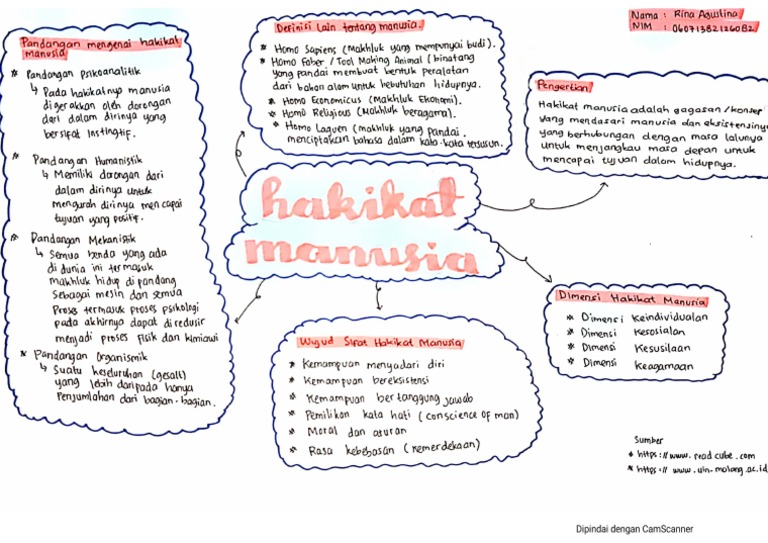 Nama : Rina Agustina
NIM : 06071382126082
hakikat
manusia
Pandangan mengenai hakikat
manusia
* Pandangan Psikoanalitik
↳ Pada hakikatnya manusia
digerakkan oleh dorongan
dari dalam dirinya yang
bersifat instingtif.
* Pandangan Humanistik
↳ Memiliki dorongan dari
dalam dirinya untuk
mengarah dirinya mencapai
tujuan yang positif.
* Pandangan Mekanistik
↳ Semua benda yang ada
di dunia ini termasuk
makhluk hidup dipandang
sebagai mesin dan semua
Proses termasuk proses psikologi
pada akhirnya dapat diredusir
menjadi proses fisik dan kimiawi
* Pandangan Organismik
↳ Suatu keseluruhan (gesalt)
yang lebih daripada hanya
Penjumlahan dari bagian-bagian.
Definisi Lain tentang manusia.
* Homo Sapiens (Makhluk yang mempunyai budi).
* Homo Faber / Tool Making Animal (binatang
yang pandai membuat bentuk peralatan
dari bahan alam untuk kebutuhan hidupnya.
* Homo Economicus (Makhluk Ekonomi).
* Homo Religious (Makhluk beragama).
* Homo Laquen (makhluk yang pandai
menciptakan bahasa dalam kata-kata tersusun.
Pengertian
Hakikat manusia adalah gagasan / konsep
yang mendasari manusia dan eksistensinya
yang berhubungan dengan masa lalunya
untuk menjangkau masa depan untuk
mencapai tujuan dalam hidupnya.
Wujud Sifat Hakikat Manusia
* Kemampuan menyadari diri
* Kemampuan bereksistensi
* Kemampuan bertanggung jawab
* Pemilikan kata hati (conscience of man)
* Moral dan aturan
* Rasa kebebasan (kemerdekaan)
Dimensi Hakikat Manusia
* Dimensi Keindividualan
* Dimensi Kesosialan
* Dimensi Kesusilaan
* Dimensi Keagamaan
Sumber
* https://www.readcube.com
* https://www.uin-malang.ac.id
Dipindai dengan CamScanner